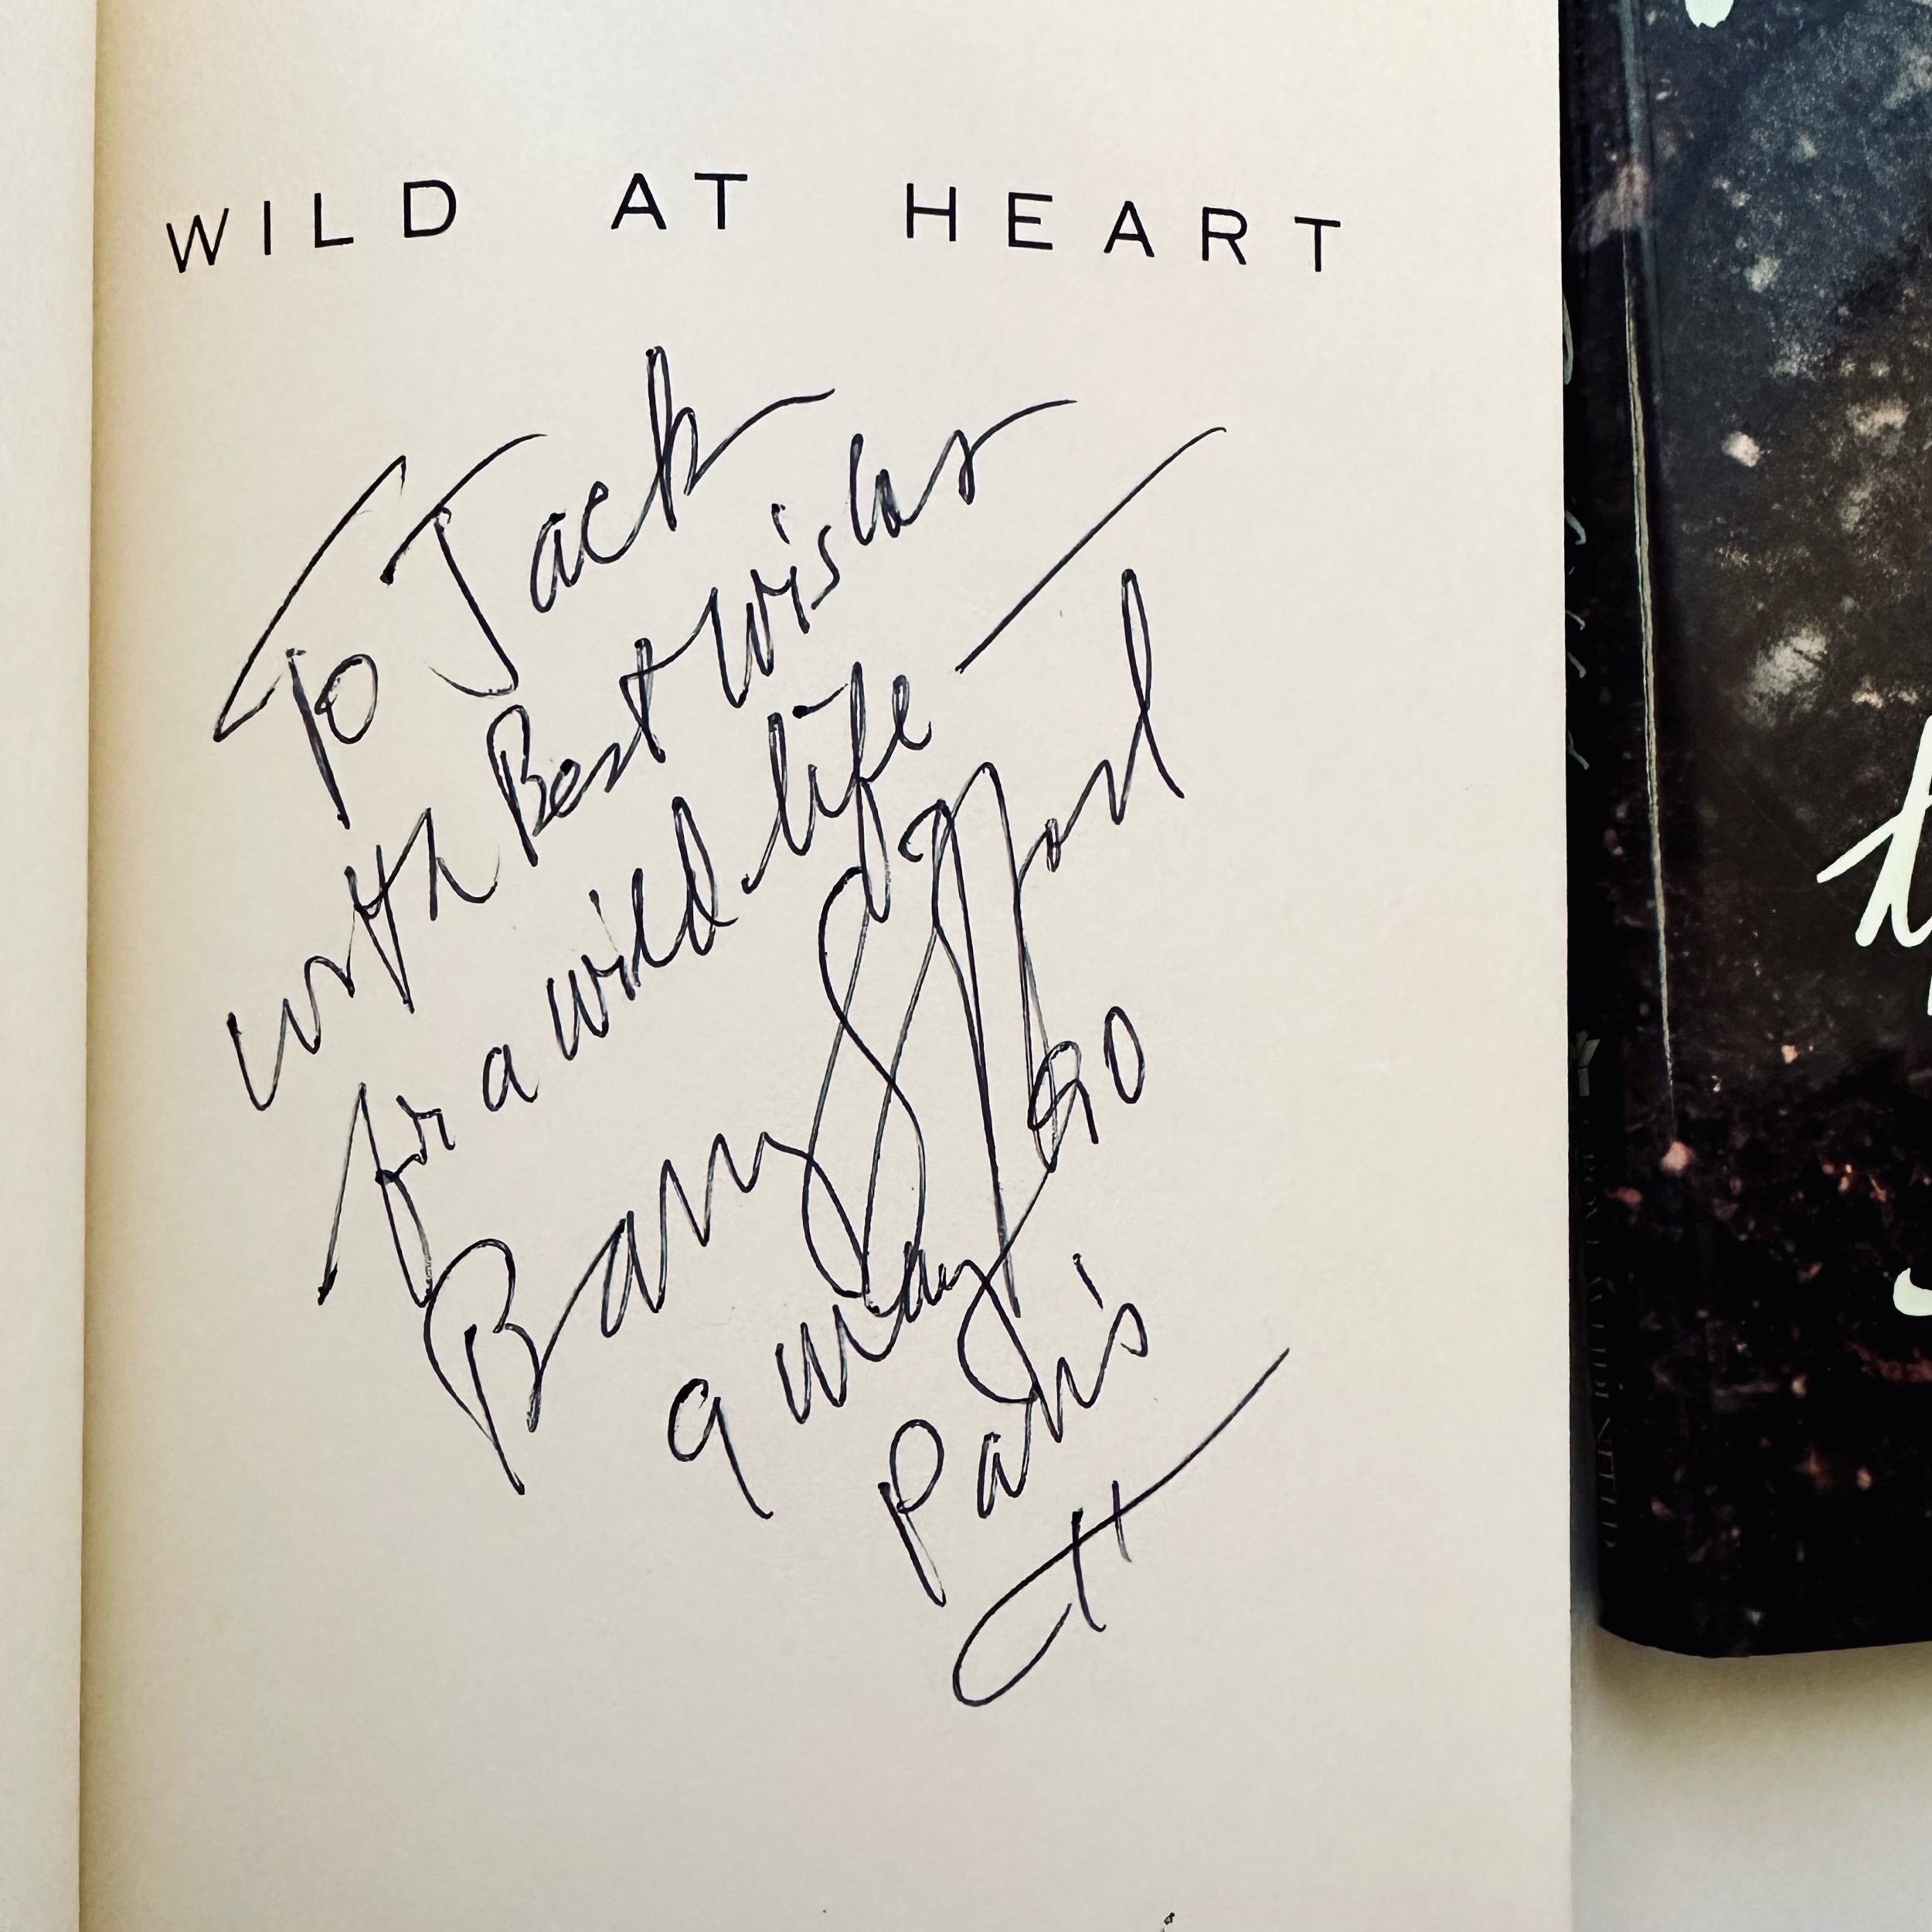 WILD AT HEART
To Jack
with Best Wishes
for a wild life —
Barry Gifford
9 May 90
Paris